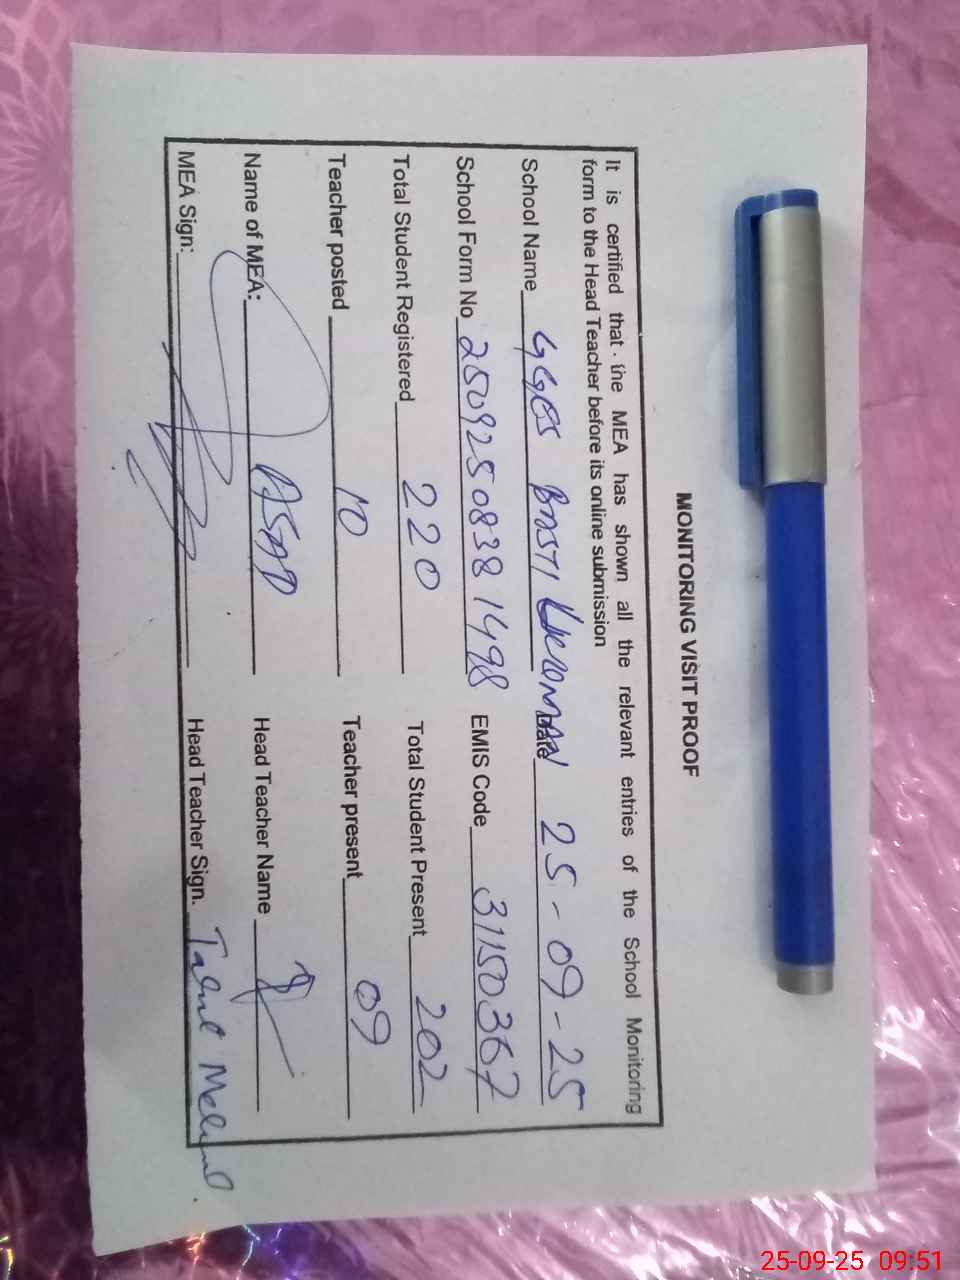 MONITORING VISIT PROOF
It is certified that the MEA has shown all the relevant entries of the School Monitoring
form to the Head Teacher before its online submission
School Name GGES BASTI Date 25-09-25
School Form No 2509250838 1498 EMIS Code 31150367
Total Student Registered 220 Total Student Present 202
Teacher posted 10 Teacher present 09
Name of MEA: ASAD Head Teacher Name
MEA Sign: Head Teacher Sign.
25-09-25 09:51